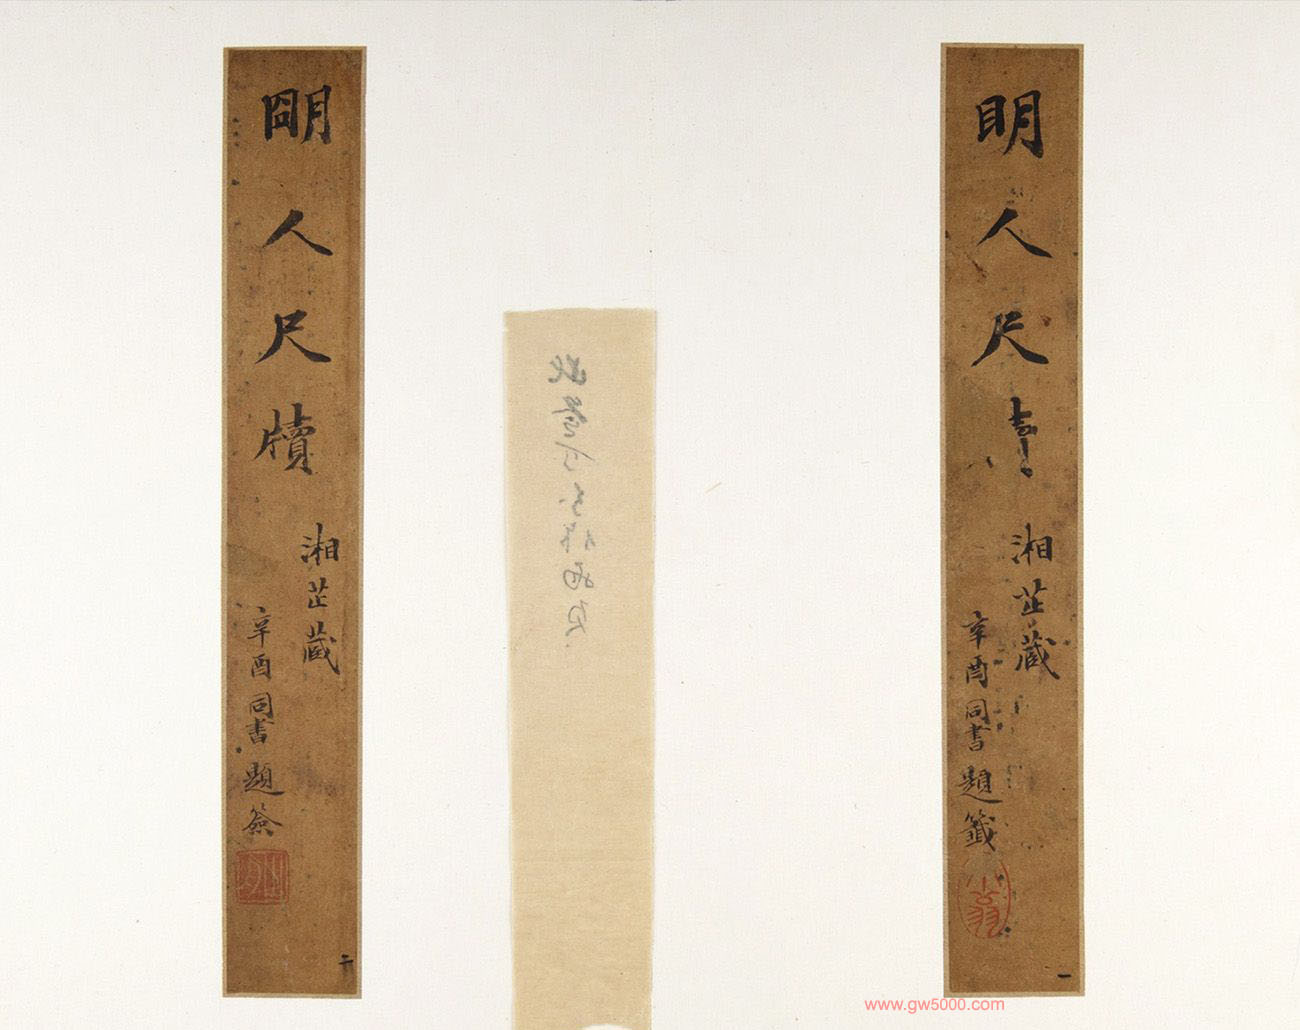 明人尺
湘芷蔵
辛酉同書題籤
一
明人尺牘
湘芷蔵
辛酉同書題簽
二
www.gw5000.com